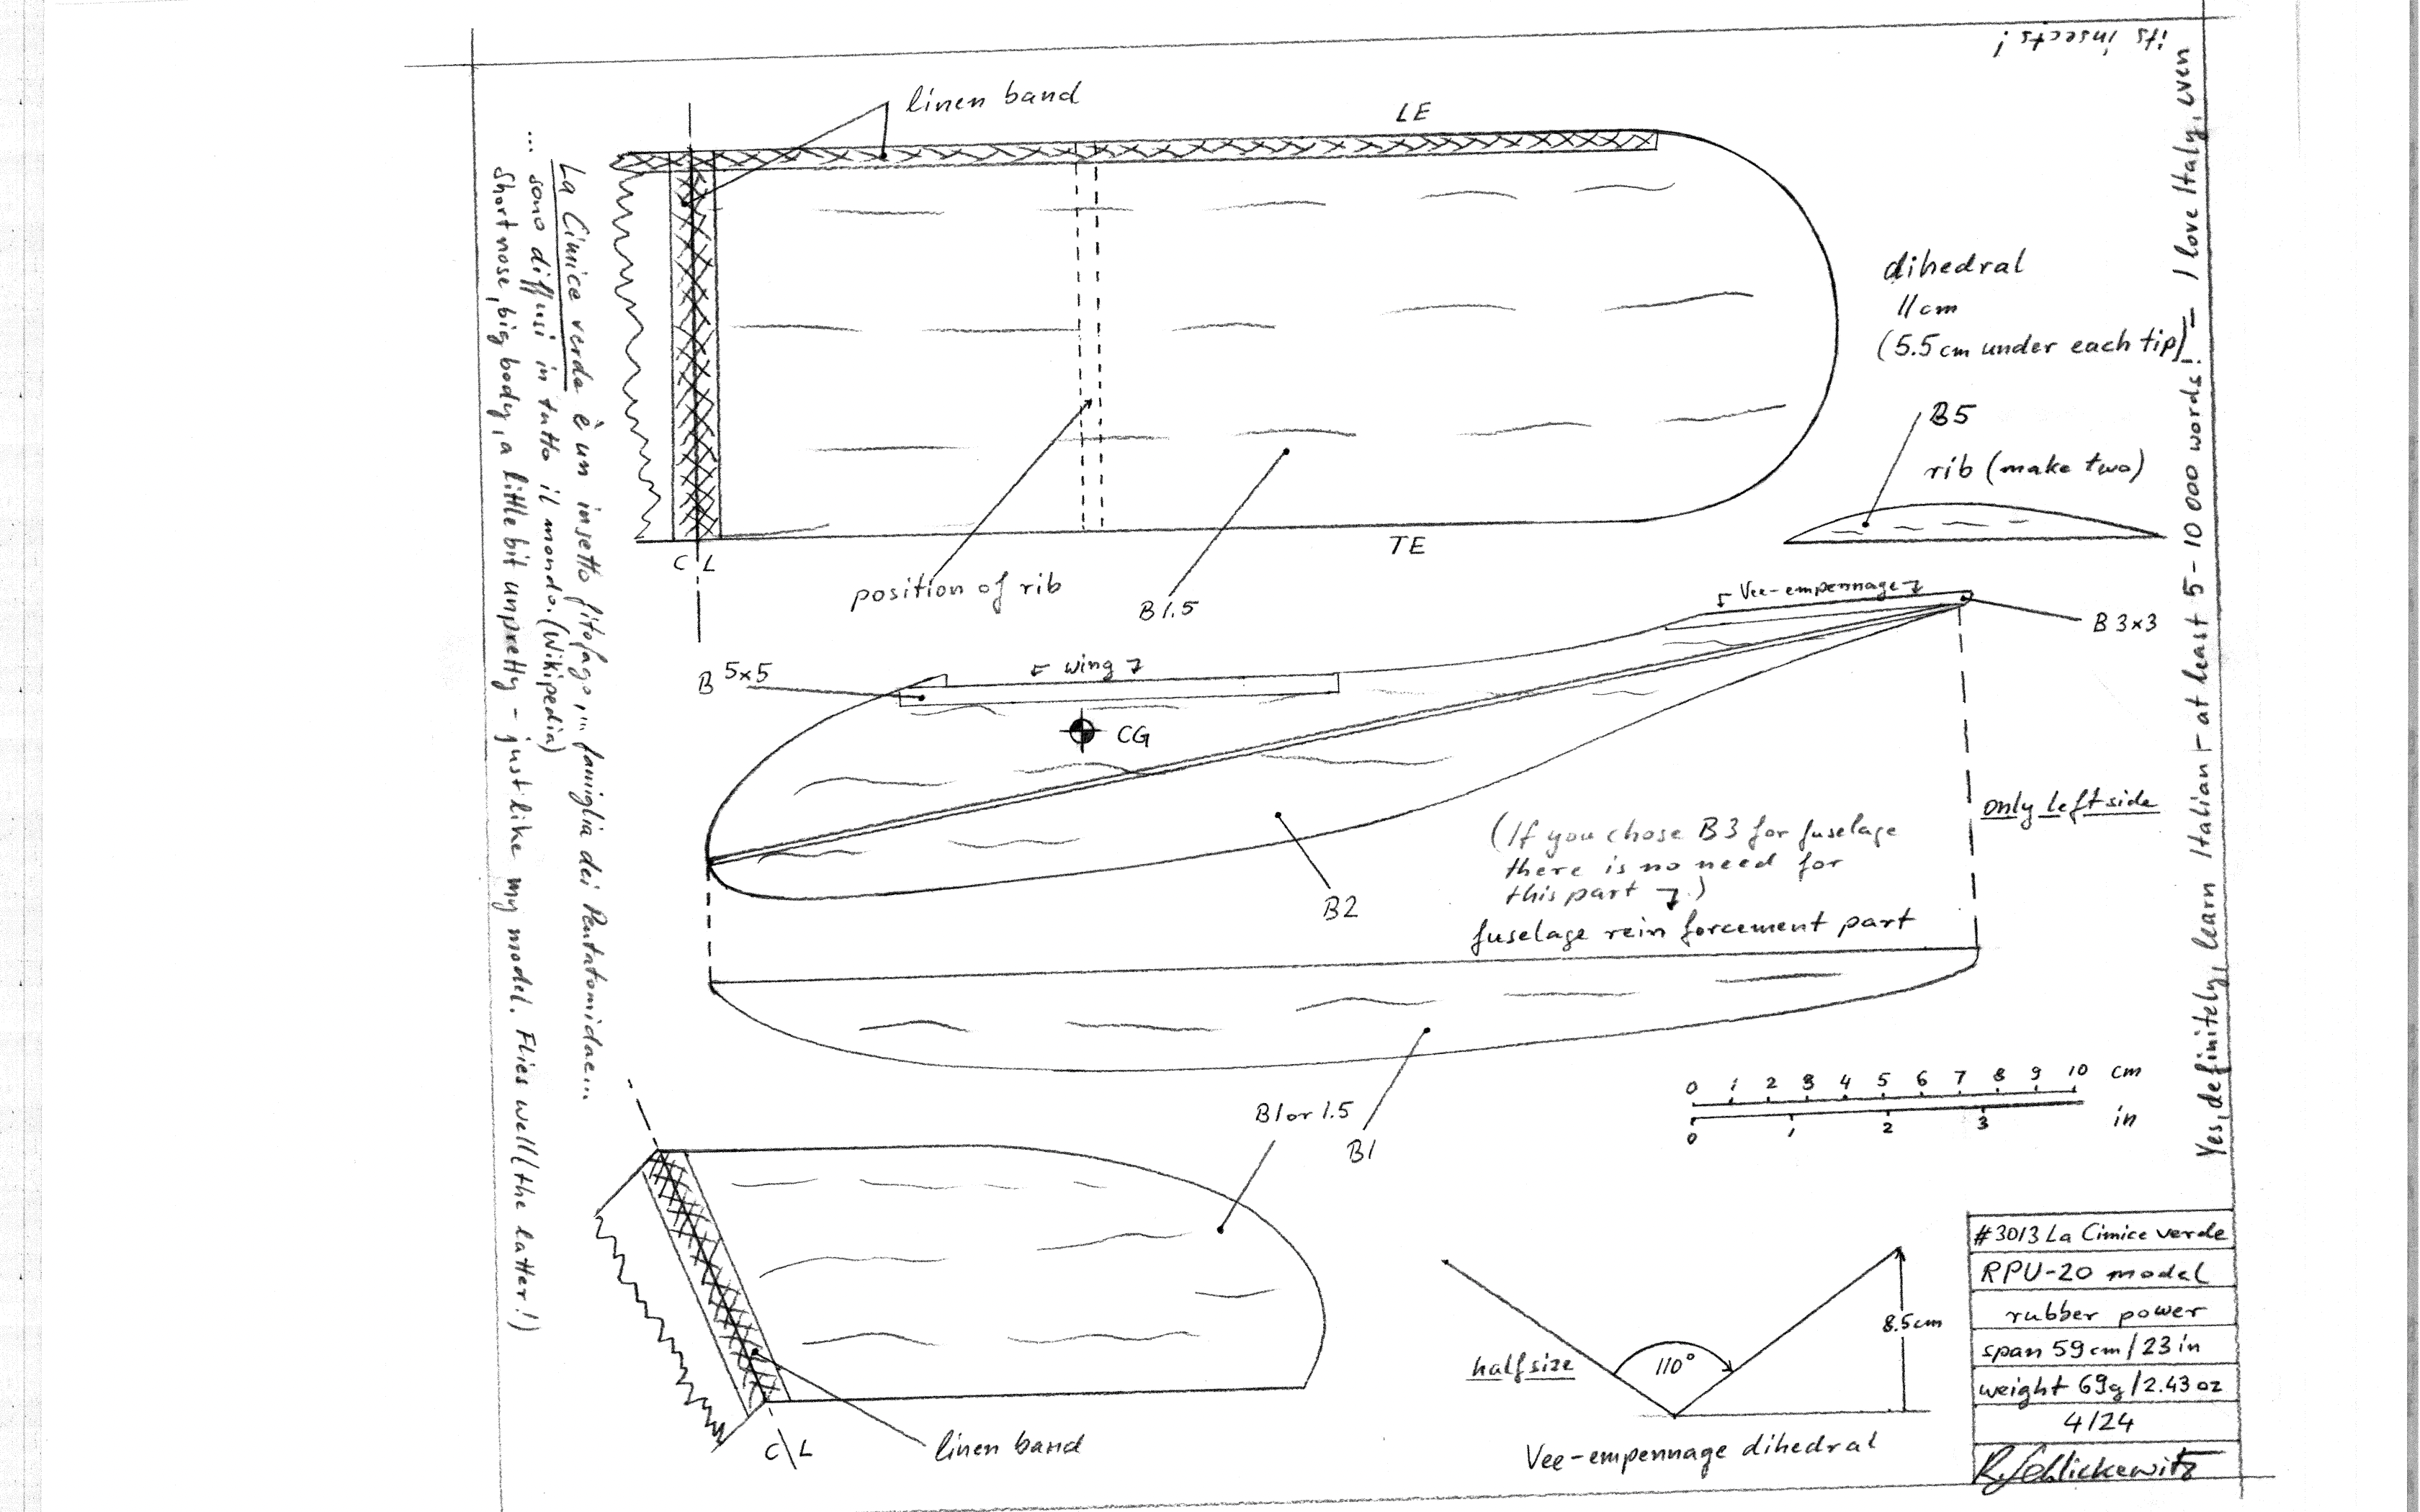 its insects!
Yes, definitely, learn Italian - at least 5-10 000 words! - I love Italy, even
linen band
LE
La Cimice verde è un insetto fitofago,... famiglia dei Pentatomidae...
... sono diffusi in tutto il mondo. (Wikipedia)
Short nose, big body, a little bit unpretty - just like my model. Flies well (the latter!)
dihedral
11cm
(5.5cm under each tip)
B5
rib (make two)
TE
C L
position of rib
B1.5
Vee-empennage
B 3x3
B 5x5
wing
CG
only left side
(If you chose B3 for fuselage
there is no need for
this part .)
B2
fuselage reinforcement part
0 1 2 3 4 5 6 7 8 9 10 cm
0 1 2 3 in
B1 or 1.5
B1
C L
linen band
half size
110°
8.5cm
Vee-empennage dihedral
#3013 La Cimice verde
RPU-20 model
rubber power
span 59cm/23in
weight 69g/2.43oz
4/24
R. Schlickewitz